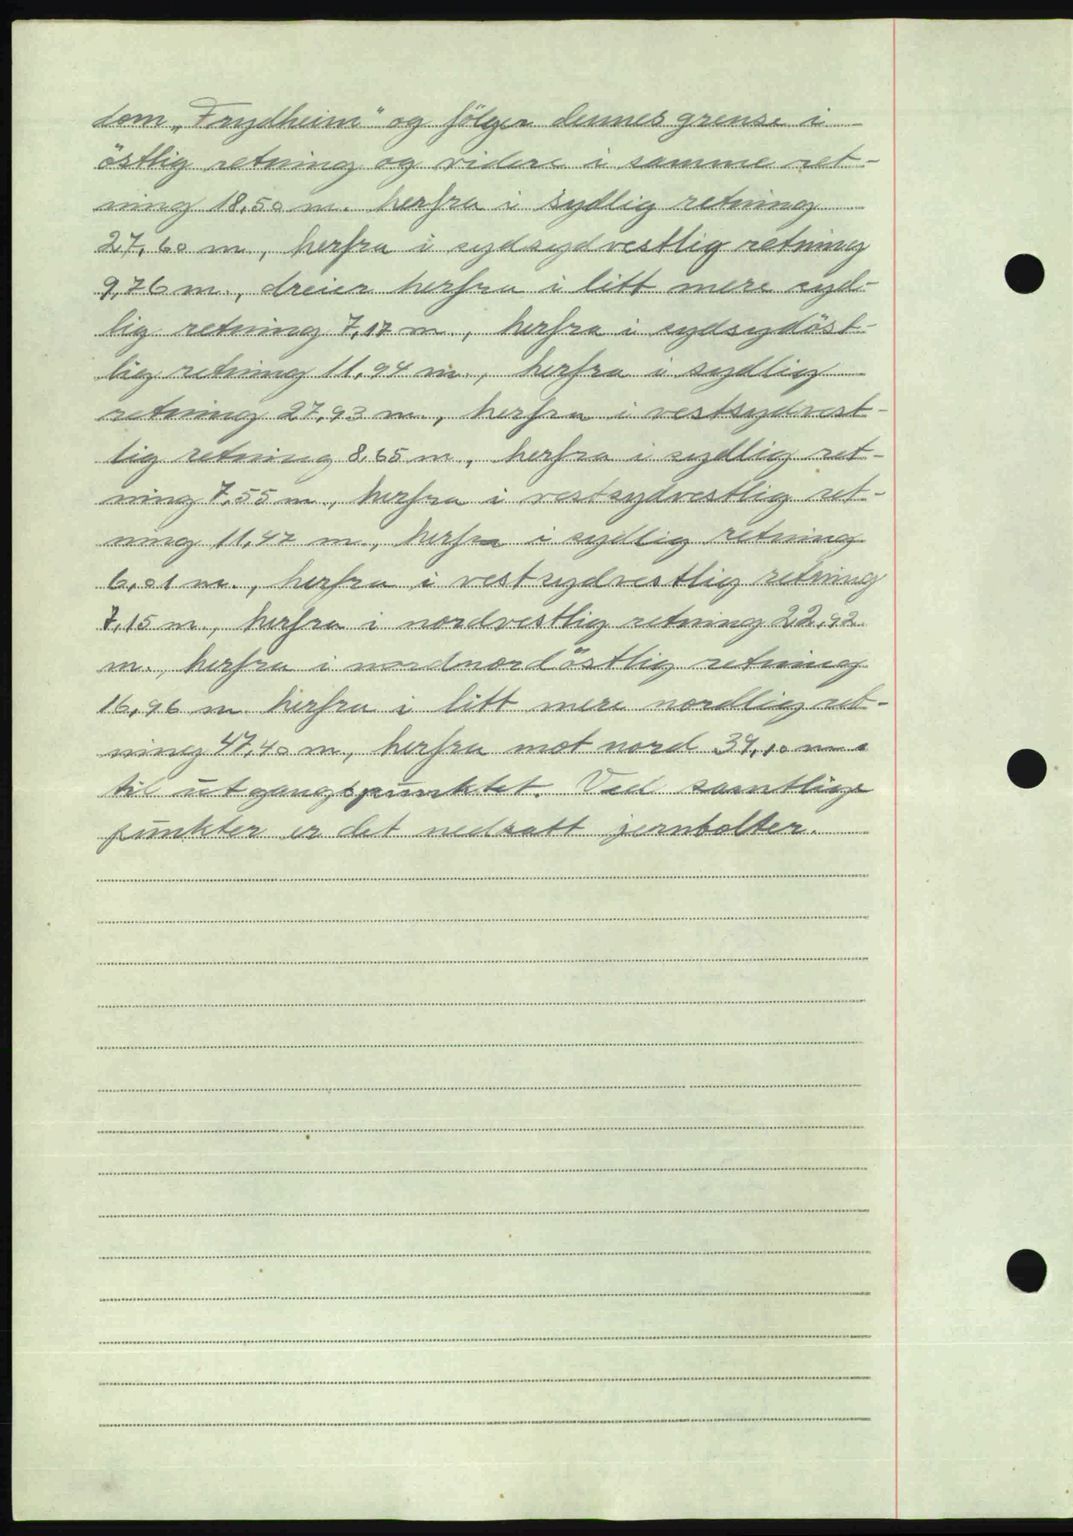 dom „Frydheim" og följer dennes grense i
östlig retning og videre i samme ret-
ning 18,50 m. herfra i sydlig retning
27,60 m., herfra i sydsydvestlig retning
9,76 m., dreier herfra i litt mere syd-
lig retning 7,17 m., herfra i sydsydöst-
lig retning 11,94 m., herfra i sydlig
retning 27,93 m., herfra i vestsydvest-
lig retning 8,65 m., herfra i sydlig ret-
ning 7,55 m., herfra i vestsydvestlig ret-
ning 11,47 m., herfra i sydlig retning
6,01 m., herfra i vestsydvestlig retning
7,15 m., herfra i nordvestlig retning 22,92
m., herfra i nordnordöstlig retning
16,96 m herfra i litt mere nordlig ret-
ning 47,40 m., herfra mot nord 39,10 m.
til utgangspunktet. Ved samtlige
punkter er det nedsatt jernbolter.